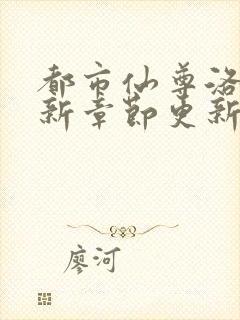 都市仙尊洛
新章节更新
廖河